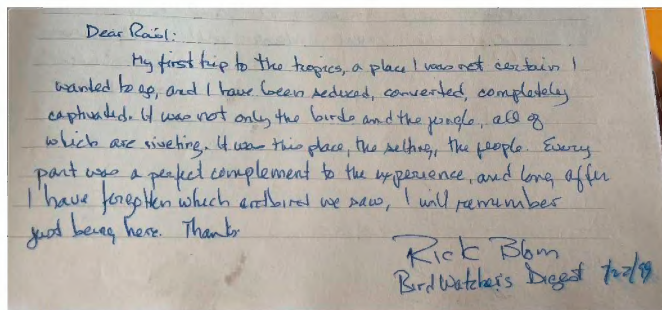 Dear Raúl:
My first trip to the tropics, a place I was not certain I
wanted to go, and I have been seduced, converted, completely
captivated. It was not only the birds and the jungle, all of
which are riveting. It was this place, the setting, the people. Every
part was a perfect complement to the experience, and long after
I have forgotten which antbird we saw, I will remember
just being here. Thanks
Rick Blom
Bird Watcher's Digest 7/22/99